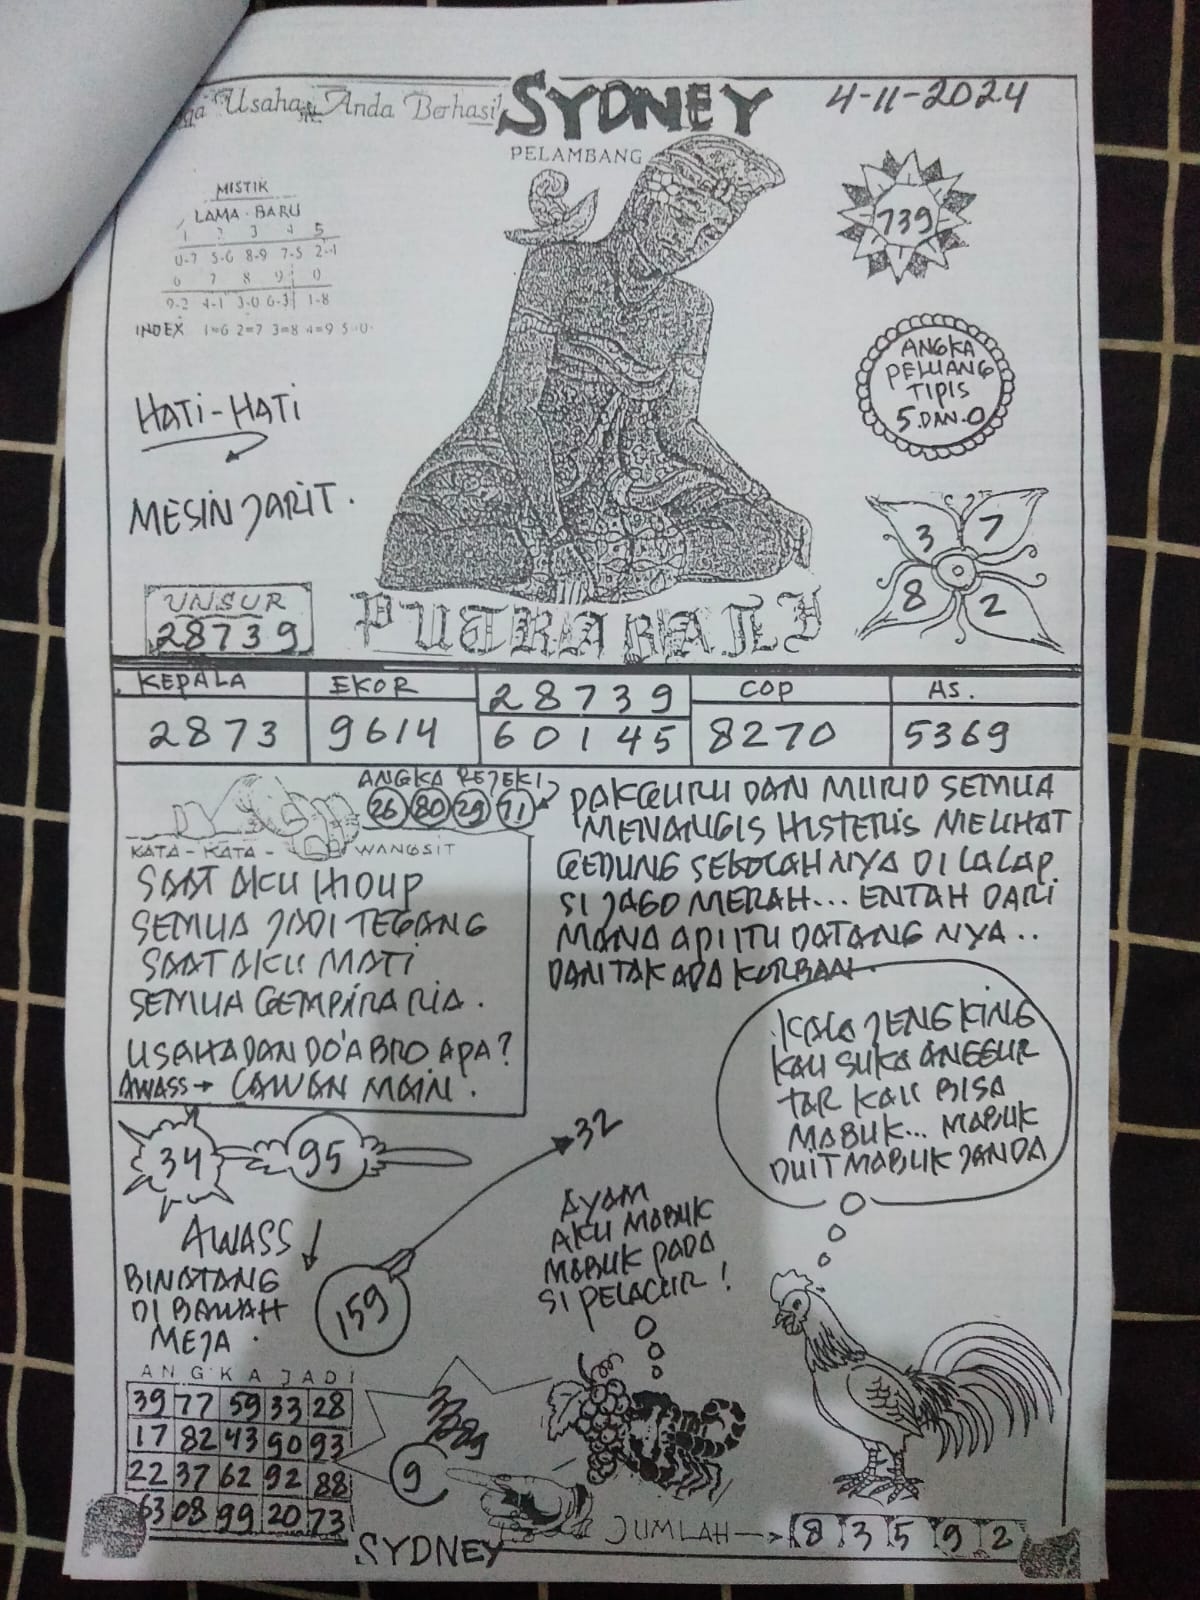 Usaha Anda Berhasil
SYDNEY
4-11-2024
PELAMBANG
MISTIK
LAMA - BARU
1 2 3 4 5
0-7 5-6 8-9 7-5 2-4
6 7 8 9 0
9-2 4-1 3-0 6-3 1-8
INDEX 1=6 2=7 3=8 4=9 5=0
739
ANGKA
PELUANG
TIPIS
5.DAN.0
HATI-HATI
MESIN JARIT.
3 7
8 2
UNSUR
28739
PUTRA BALI
KEPALA EKOR 28739 COP AS.
2873 9614 60145 8270 5369
ANGKA REJEKI
26 80 29 71
KATA - KATA - WANGSIT
SAAT AKU HIDUP
SEMUA JADI TEGANG
SAAT AKU MATI
SEMUA GEMPIRA RIA.
USAHA DAN DO'A BRO APA?
AWASS → CAWAN MAIN.
PAKGURU DAN MURID SEMUA
MENANGIS HISTERIS MELIHAT
GEDUNG SEKOLAHNYA DI LALAP
SI JAGO MERAH... ENTAH DARI
MANA API ITU DATANG NYA..
DAN TAK ADA KORBAN.
KALA JENGKING
KAU SUKA ANGGUR
TAK KAU BISA
MABUK... MABUK
DUIT MABUK JANDA
34 95
32
AWASS
BINATANG
DI BAWAH
MEJA.
159
AYAM
AKU MABUK
MABUK PADA
SI PELACUR!
ANGKA JADI
39 77 59 33 28
17 82 43 90 93
22 37 62 92 88
63 08 99 20 73
9
SYDNEY
JUMLAH → 8 3 5 9 2